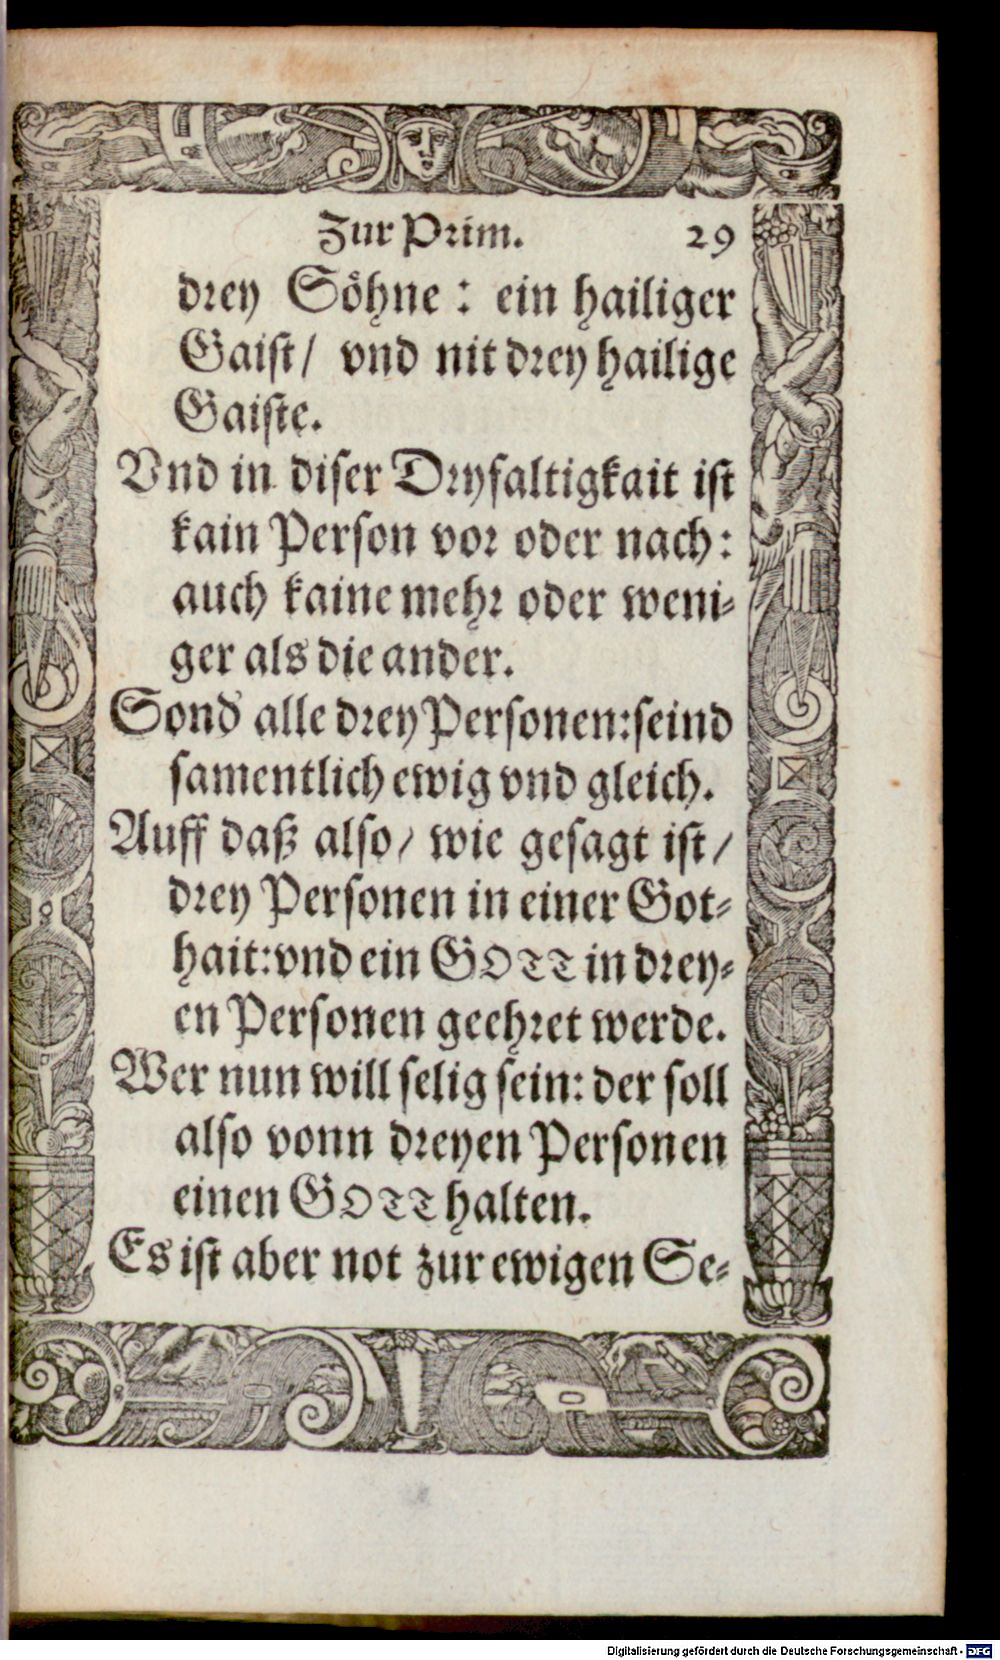 Zur Prim. 29
drey Söhne : ein hailiger
Gaist/ vnd nit drey hailige
Gaiste.
Vnd in diser Dryfaltigkait ist
kain Person vor oder nach:
auch kaine mehr oder weni-
ger als die ander.
Sond' alle drey Personen: seind
samentlich ewig vnd gleich.
Auff daß also/ wie gesagt ist/
drey Personen in einer Got-
hait: vnd ein GOTT in drey-
en Personen geehret werde.
Wer nun will selig sein: der soll
also vonn dreyen Personen
einen GOTT halten.
Es ist aber not zur ewigen Se-
Digitalisierung gefördert durch die Deutsche Forschungsgemeinschaft - DFG